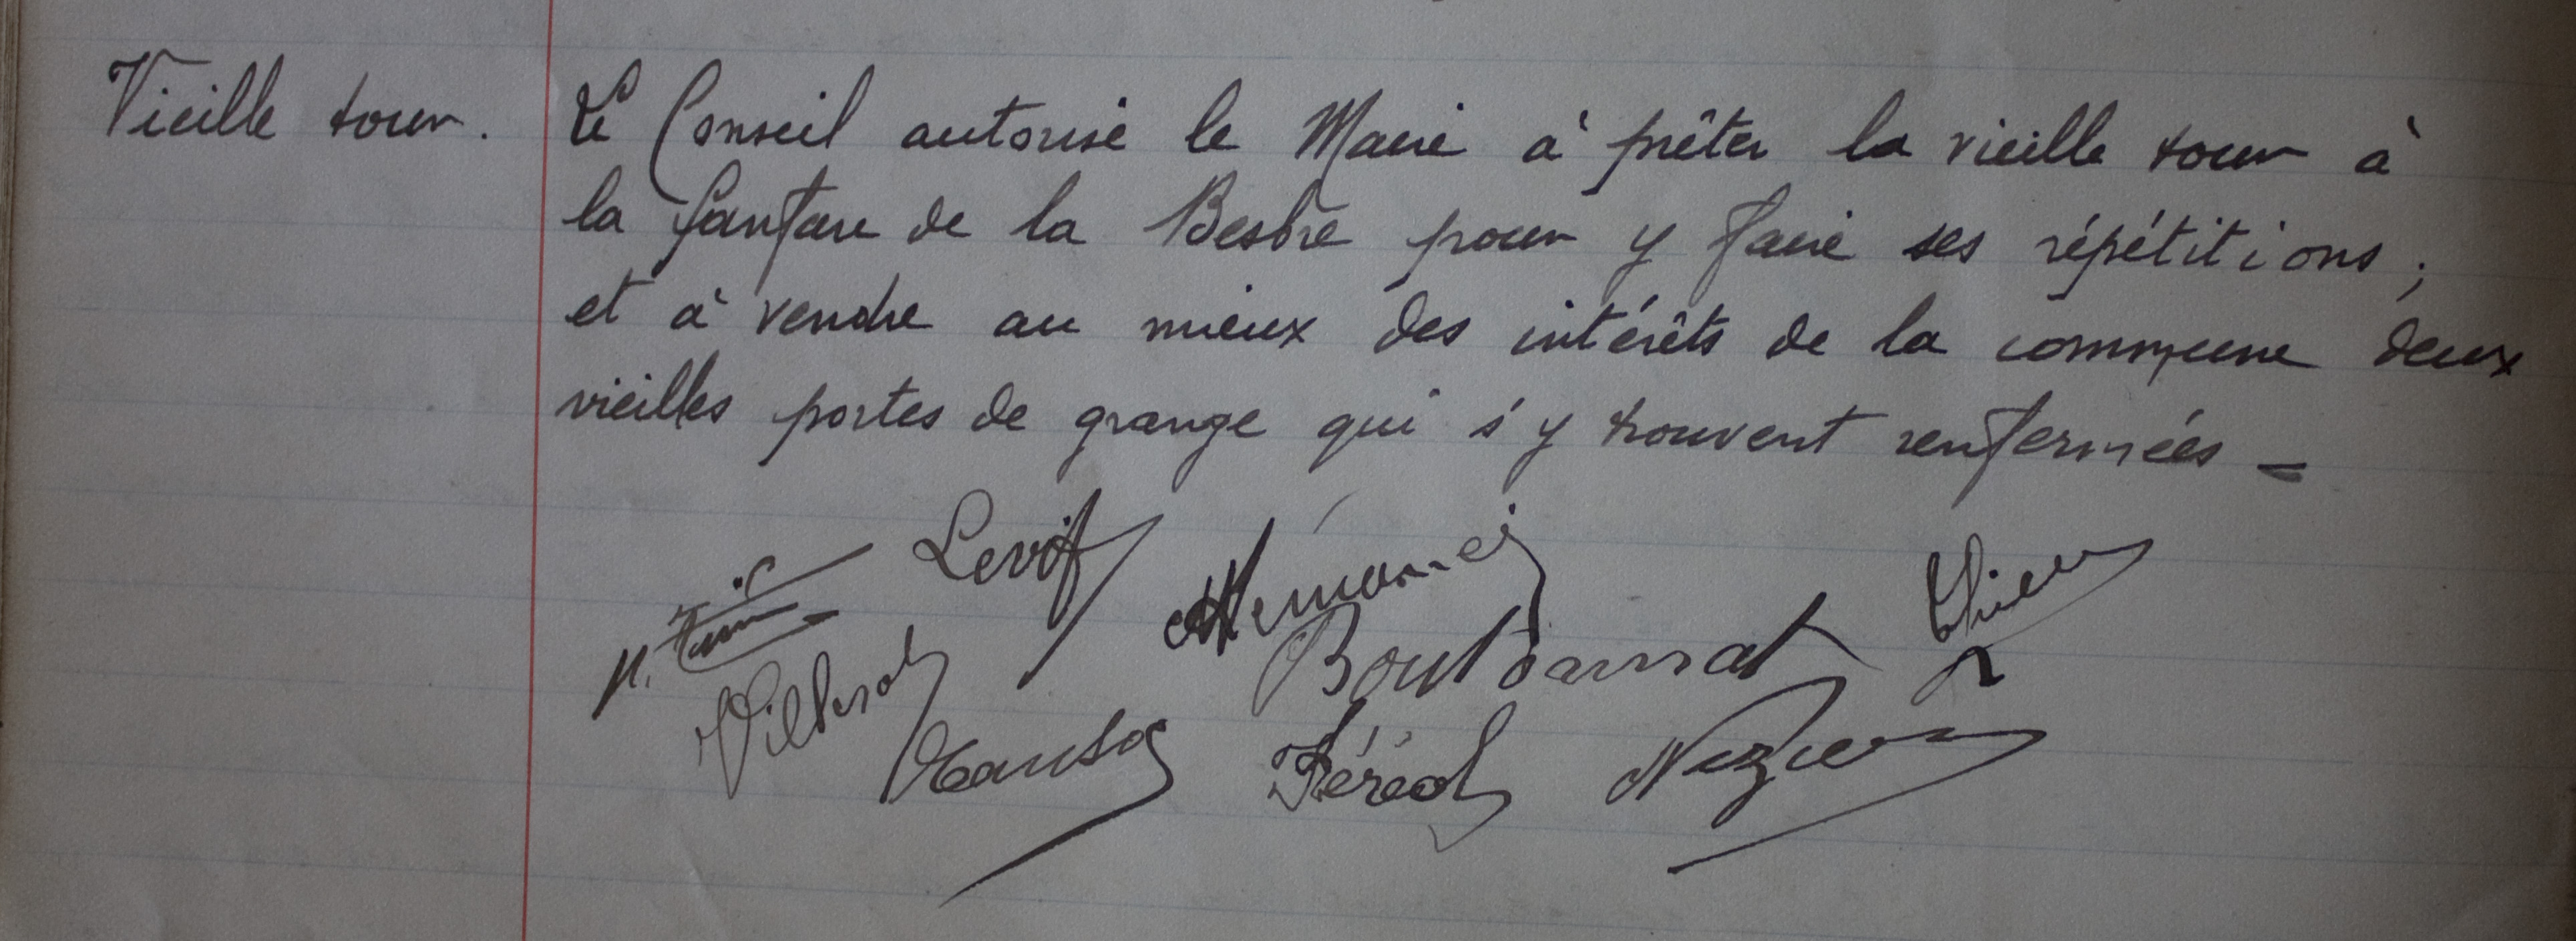 Vieille tour. Le Conseil autorise le Maire à prêter la vieille tour à
la fanfare de la Besbre pour y faire ses répétitions ;
et à vendre au mieux des intérêts de la commune deux
vieilles portes de grange qui s'y trouvent renfermées –
Boutonnat
Féréol